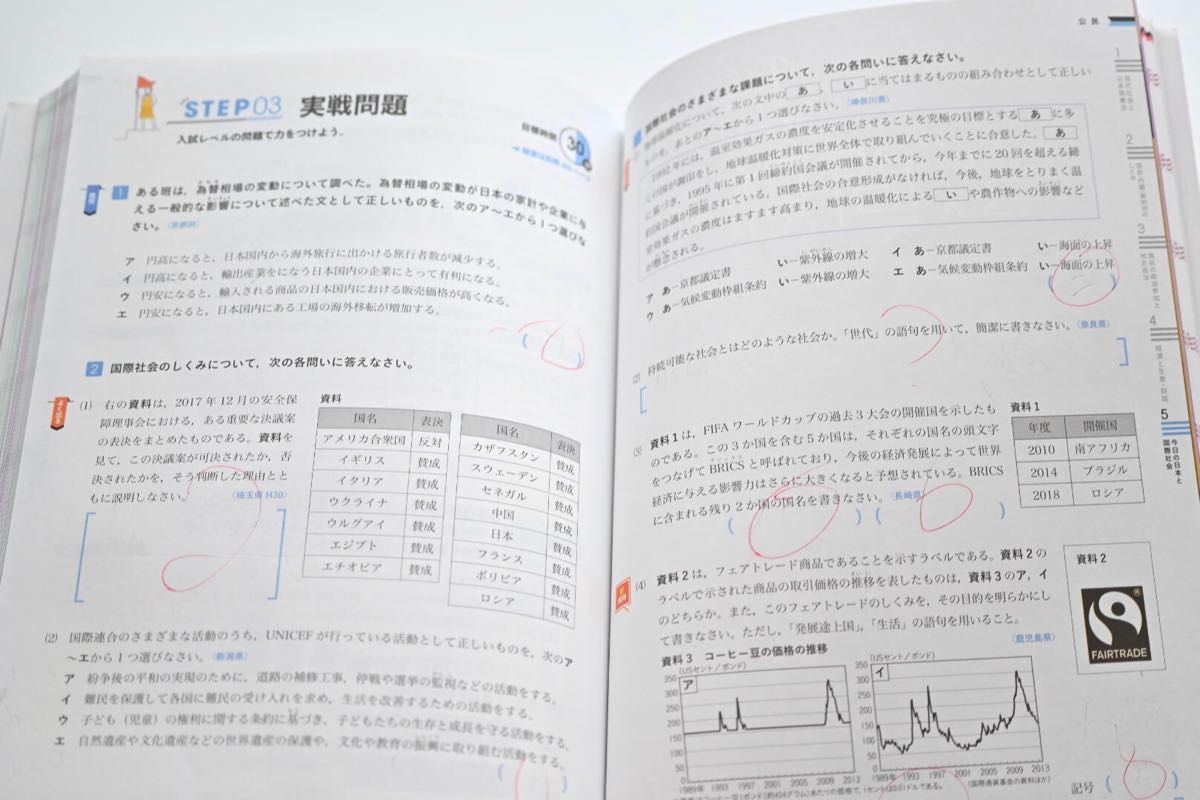 STEP03 実戦問題
入試レベルの問題で力をつけよう。
目標時間
30
1 ある班は，為替相場の変動について調べた。為替相場の変動が日本の家計や企業に与
える一般的な影響について述べた文として正しいものを，次のア～エから1つ選びな
さい。
ア 円高になると，日本国内から海外旅行に出かける旅行者数が減少する。
イ 円高になると，輸出産業をになう日本国内の企業にとって有利になる。
ウ 円安になると，輸入される商品の日本国内における販売価格が高くなる。
エ 円安になると，日本国内にある工場の海外移転が増加する。
2 国際社会のしくみについて，次の各問いに答えなさい。
よく出る
(1) 右の資料は，2017年12月の安全保
障理事会における，ある重要な決議案
の表決をまとめたものである。資料を
見て，この決議案が可決されたか，否
決されたかを，そう判断した理由とと
もに説明しなさい。〈埼玉県 H30〉
資料
国名 表決
アメリカ合衆国 反対
イギリス 賛成
イタリア 賛成
ウクライナ 賛成
ウルグアイ 賛成
エジプト 賛成
エチオピア 賛成
国名 表決
カザフスタン 賛成
スウェーデン 賛成
セネガル 賛成
中国 賛成
日本 賛成
フランス 賛成
ボリビア 賛成
ロシア 賛成
(2) 国際連合のさまざまな活動のうち，UNICEFが行っている活動として正しいものを，次のア
～エから1つ選びなさい。〈新潟県〉
ア 紛争後の平和の実現のために，道路の補修工事，停戦や選挙の監視などの活動をする。
イ 難民を保護して各国に難民の受け入れを求め，生活を改善するための活動をする。
ウ 子ども（児童）の権利に関する条約に基づき，子どもたちの生存と成長を守る活動をする。
エ 自然遺産や文化遺産などの世界遺産の保護や，文化や教育の振興に取り組む活動をする。
公民
国際社会のさまざまな課題について，次の各問いに答えなさい。
温暖化について，次の文中の あ ， い に当てはまるものの組み合わせとして正しい
ものを，あとのア～エから1つ選びなさい。〈神奈川県〉
1992年には，温室効果ガスの濃度を安定化させることを究極の目標とする あ に多
くの国が調印をし，地球温暖化対策に世界全体で取り組んでいくことに合意した。 あ
に基づき，1995年に第1回締約国会議が開催されてから，今年までに20回を超える締
約国会議が開催されている。国際社会の合意形成がなければ，今後，地球をとりまく温
室効果ガスの濃度はますます高まり，地球の温暖化による い や農作物への影響など
が懸念される。
ア あ－京都議定書 い－紫外線の増大 イ あ－京都議定書 い－海面の上昇
ウ あ－気候変動枠組条約 い－紫外線の増大 エ あ－気候変動枠組条約 い－海面の上昇
(2) 持続可能な社会とはどのような社会か。「世代」の語句を用いて，簡潔に書きなさい。〈奈良県〉
(3) 資料1は，FIFAワールドカップの過去3大会の開催国を示したも
のである。この3か国を含む5か国は，それぞれの国名の頭文字
をつなげてBRICSと呼ばれており，今後の経済発展によって世界
経済に与える影響力はさらに大きくなると予想されている。BRICS
に含まれる残り2か国の国名を書きなさい。〈長崎県〉
資料1
年度 開催国
2010 南アフリカ
2014 ブラジル
2018 ロシア
(4) 資料2は，フェアトレード商品であることを示すラベルである。資料2の
ラベルで示された商品の取引価格の推移を表したものは，資料3のア，イ
のどちらか。また，このフェアトレードのしくみを，その目的を明らかにし
て書きなさい。ただし，「発展途上国」，「生活」の語句を用いること。
〈鹿児島県〉
資料2
FAIRTRADE
資料3 コーヒー豆の価格の推移
(USセント／ポンド)
350
300
250
200
150
100
50
0
ア
1989年 1993 1997 2001 2005 2009 2013
(USセント／ポンド)
350
300
250
200
150
100
50
0
イ
1989年 1993 1997 2001 2005 2009 2013
（国際通貨基金の資料ほか）
記号
1
2
3
4
5
今日の日本と
国際社会